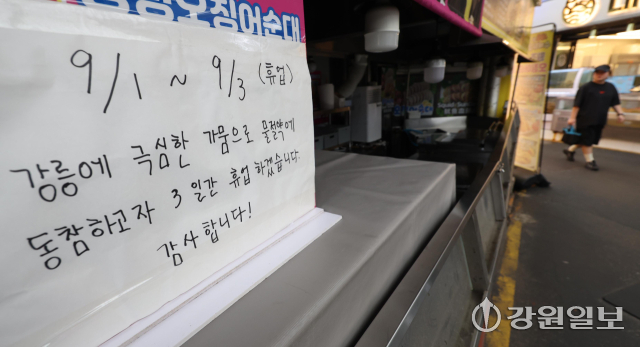 오징어순대
9/1 ~ 9/3 (휴업)
강릉에 극심한 가뭄으로 물절약에
동참하고자 3일간 휴업 하겠습니다
감사합니다!
강원일보